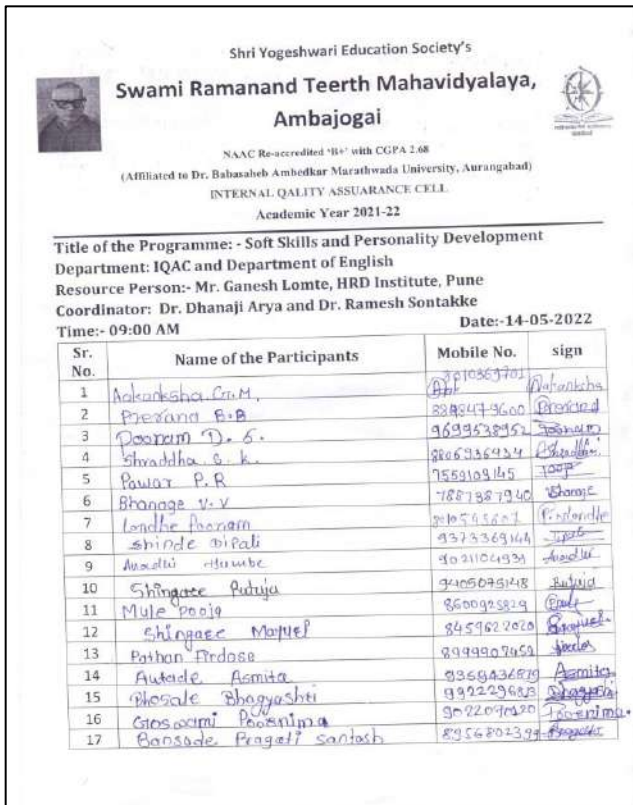 Shri Yogeshwari Education Society's
Swami Ramanand Teerth Mahavidyalaya,
Ambajogai
NAAC Re-accredited 'B+' with CGPA 2.68
(Affiliated to Dr. Babasaheb Ambedkar Marathwada University, Aurangabad)
INTERNAL QALITY ASSURANCE CELL
Academic Year 2021-22
Title of the Programme: - Soft Skills and Personality Development
Department: IQAC and Department of English
Resource Person:- Mr. Ganesh Lomte, HRD Institute, Pune
Coordinator: Dr. Dhanaji Arya and Dr. Ramesh Sontakke
Time:- 09:00 AM Date:-14-05-2022
Sr. No. Name of the Participants Mobile No. sign
1 Aakanksha G.M. 8010369701 Aakanksha
2 Prerana B.B Prerana
3 Poonam D. S. 9699538952 Poonam
4 Shraddha S. K. 8806936434 Shraddha
5 Pawar P.R 7559109145
6 Bhanage V.V 7887387940 Bhanage
7 Londhe Poonam P.Londhe
8 Shinde Dipali 9373369144
9 Humbe 9021104931
10 Shingare Rutuja 9405075148 Rutuja
11 Mule Pooja 8600925829
12 Shingare 8459622020
13 Pathan Firdose 8999907452
14 Autade Asmita Asmita
15 Bhosale Bhagyashri Bhagyashri
16 Goswami Poornima Poornima.
17 Bansode Pragati Santosh